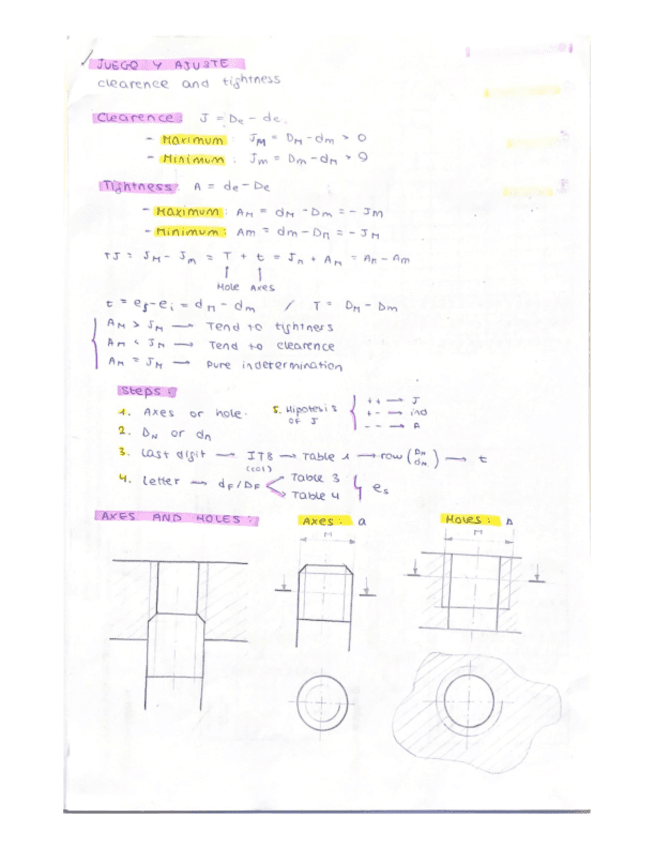 JUEGO Y AJUSTE
clearence and tightness
Clearence: J = De - de.
- Maximum: JM = DM - dm > 0
- Minimum: Jm = Dm - dM > 0
Tightness: A = de - De
- Maximum: AM = dM - Dm = - Jm
- Minimum: Am = dm - DM = - JM
TJ = JM - Jm = T + t = JM + AM = AM - Am
Hole Axes
t = es - ei = dM - dm / T = DM - Dm
AM > JM → Tend to tightness
AM < JM → Tend to clearence
AM = JM → Pure indetermination
Steps:
1. Axes or hole.
2. DN or dn
3. Last digit → IT8 → Table 1 → row (DN dN) → t
(col)
4. Letter → dF/DF Table 3 Table 4 es
5. Hipotesis of J
++ → J
+- → ind
-- → A
AXES AND HOLES:
Axes: a
Holes: A
M
M